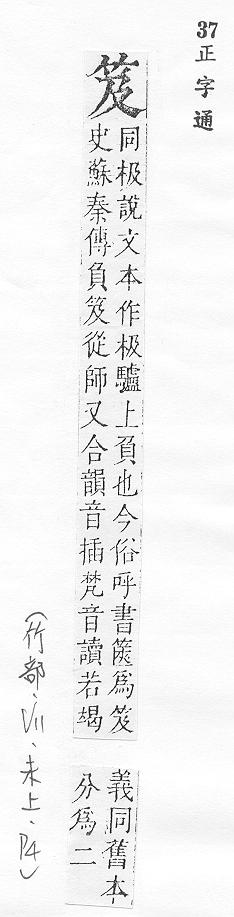 37
正字通
笈
同极說文本作极驢上負也今俗呼書篋爲笈
史蘇秦傳負笈從師又合韻音插梵音讀若竭
義同舊本
分爲二
(竹部、VII、未上、P4)